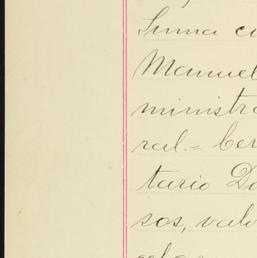 Suma co
Manuel
ministra
ral.= Cer
tario Do
sos, valo